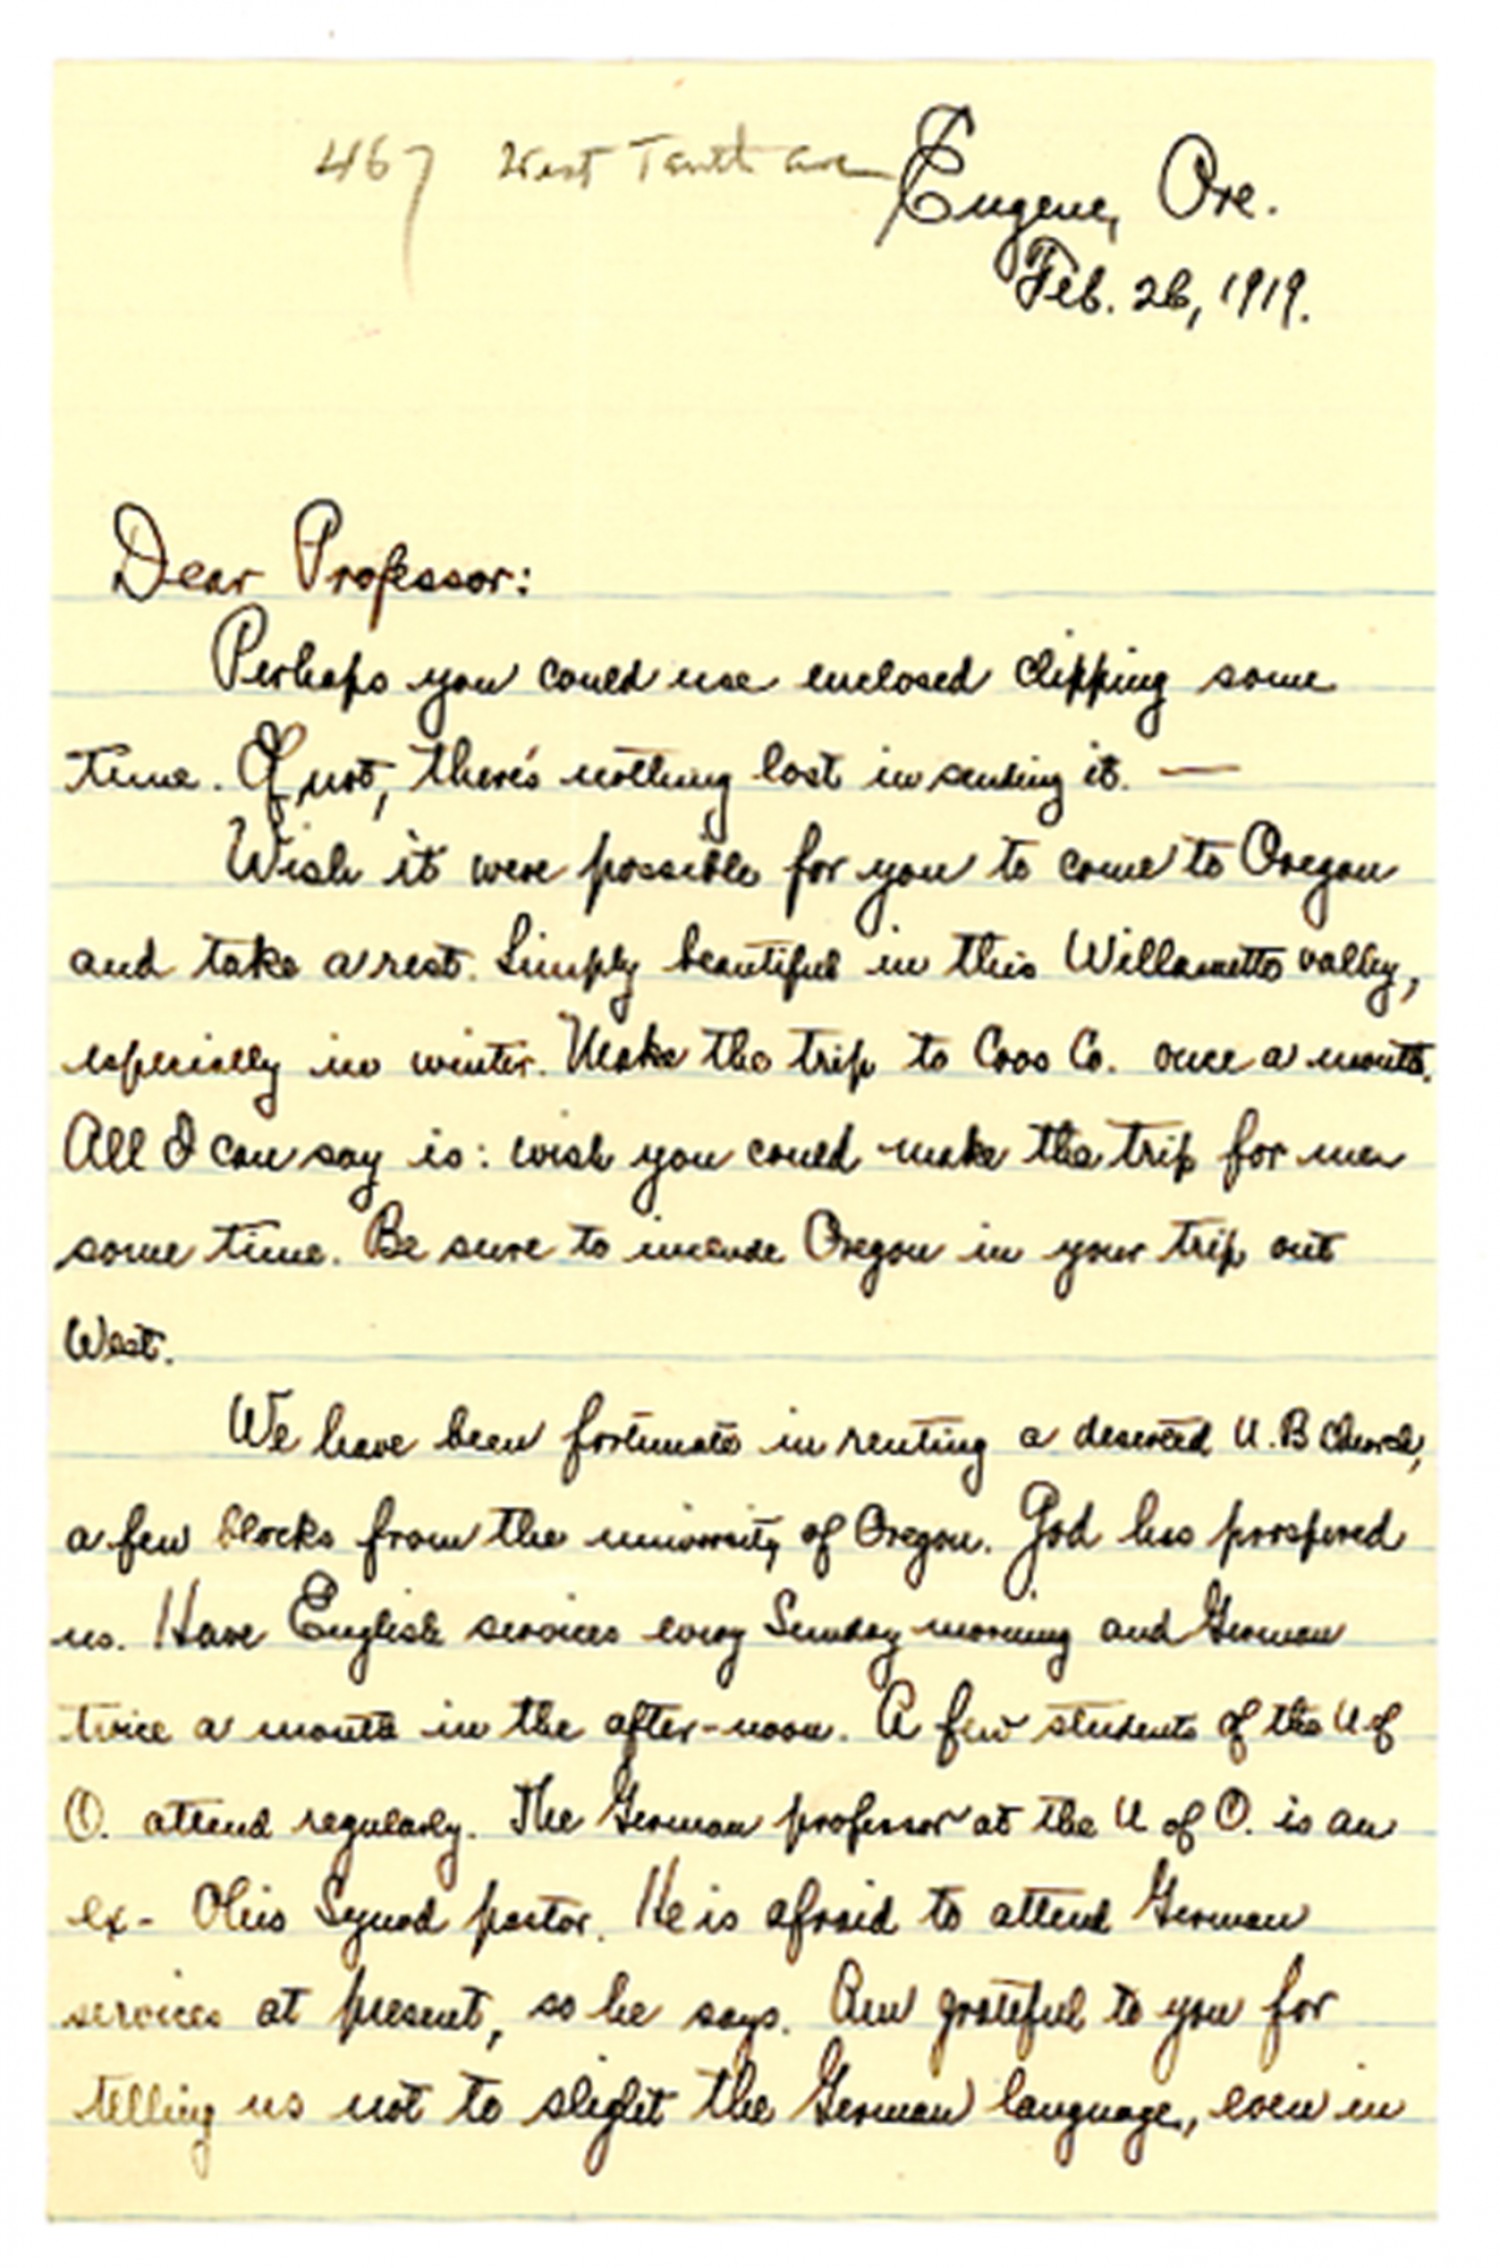 467 West Tenth Ave
Eugene, Ore.
Feb. 26, 1919.
Dear Professor:
Perhaps you could use enclosed clipping some
time. If not, there's nothing lost in sending it. —
Wish it were possible for you to come to Oregon
and take a rest. Simply beautiful in this Willamette valley,
especially in winter. Make the trip to Coos Co. once a month.
All I can say is: wish you could make the trip for me
some time. Be sure to include Oregon in your trip out
West.
We have been fortunate in renting a deserted U.B Church,
a few blocks from the university of Oregon. God has prospered
us. Have English services every Sunday morning and German
twice a month in the after-noon. A few students of the U of
O. attend regularly. The German professor at the U of O. is an
ex- Ohio Synod pastor. He is afraid to attend German
services at present, so he says. Am grateful to you for
telling us not to slight the German language, even in